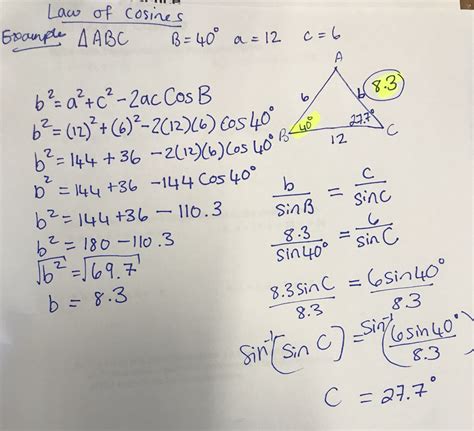 Law of Cosines
Example △ABC B=40° a=12 c=6
b²=a²+c²-2acCosB
b²=(12)²+(6)²-2(12)(6)cos40°
b²=144+36-2(12)(6)cos40°
b²=144+36-144Cos40°
b²=144+36-110.3
b²=180-110.3
√b²=√69.7
b=8.3
A
6 b 8.3
B 40° 27.7° C
12
b/sinB = c/sinC
8.3/sin40° = 6/sinC
8.3sinC/8.3 = 6sin40°/8.3
sin⁻¹(sinC)=sin⁻¹(6sin40°/8.3)
C = 27.7°